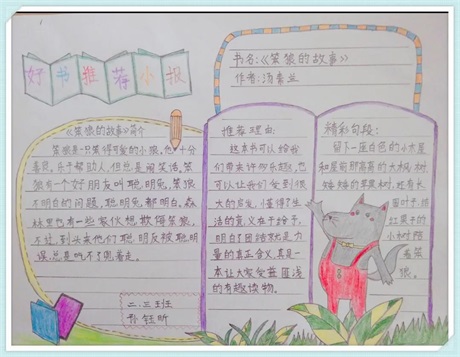 好书推荐小报
书名:《笨狼的故事》
作者:汤素业
《笨狼的故事》简介
笨狼是一只笨得可爱的小狼,他十分
善良,乐于帮助人,但总是闹笑话,笨
狼有一个好朋友叫聪明兔,笨狼
不明白的问题,聪明兔都明白。森
林里也有一些家伙想欺侮笨狼,
不过,到头来他们聪明反被聪明
误,总是吃不了兜着走。
二.三班
钰昕
推荐理由:
这本书可以给我
们带来许多乐趣,也
可以让我们受到很
大的启发,懂得了生
活的意义在于给予,
明白了团结就是力
量的真正含义,真是一
本让大家受益匪浅
的有趣读物。
精彩句段:
留下一座白色的小木屋
和屋前那高高的大枫树
矮矮的苹果树,还有长
圆叶子、结
红果子的
小树陪
着笨
狼。